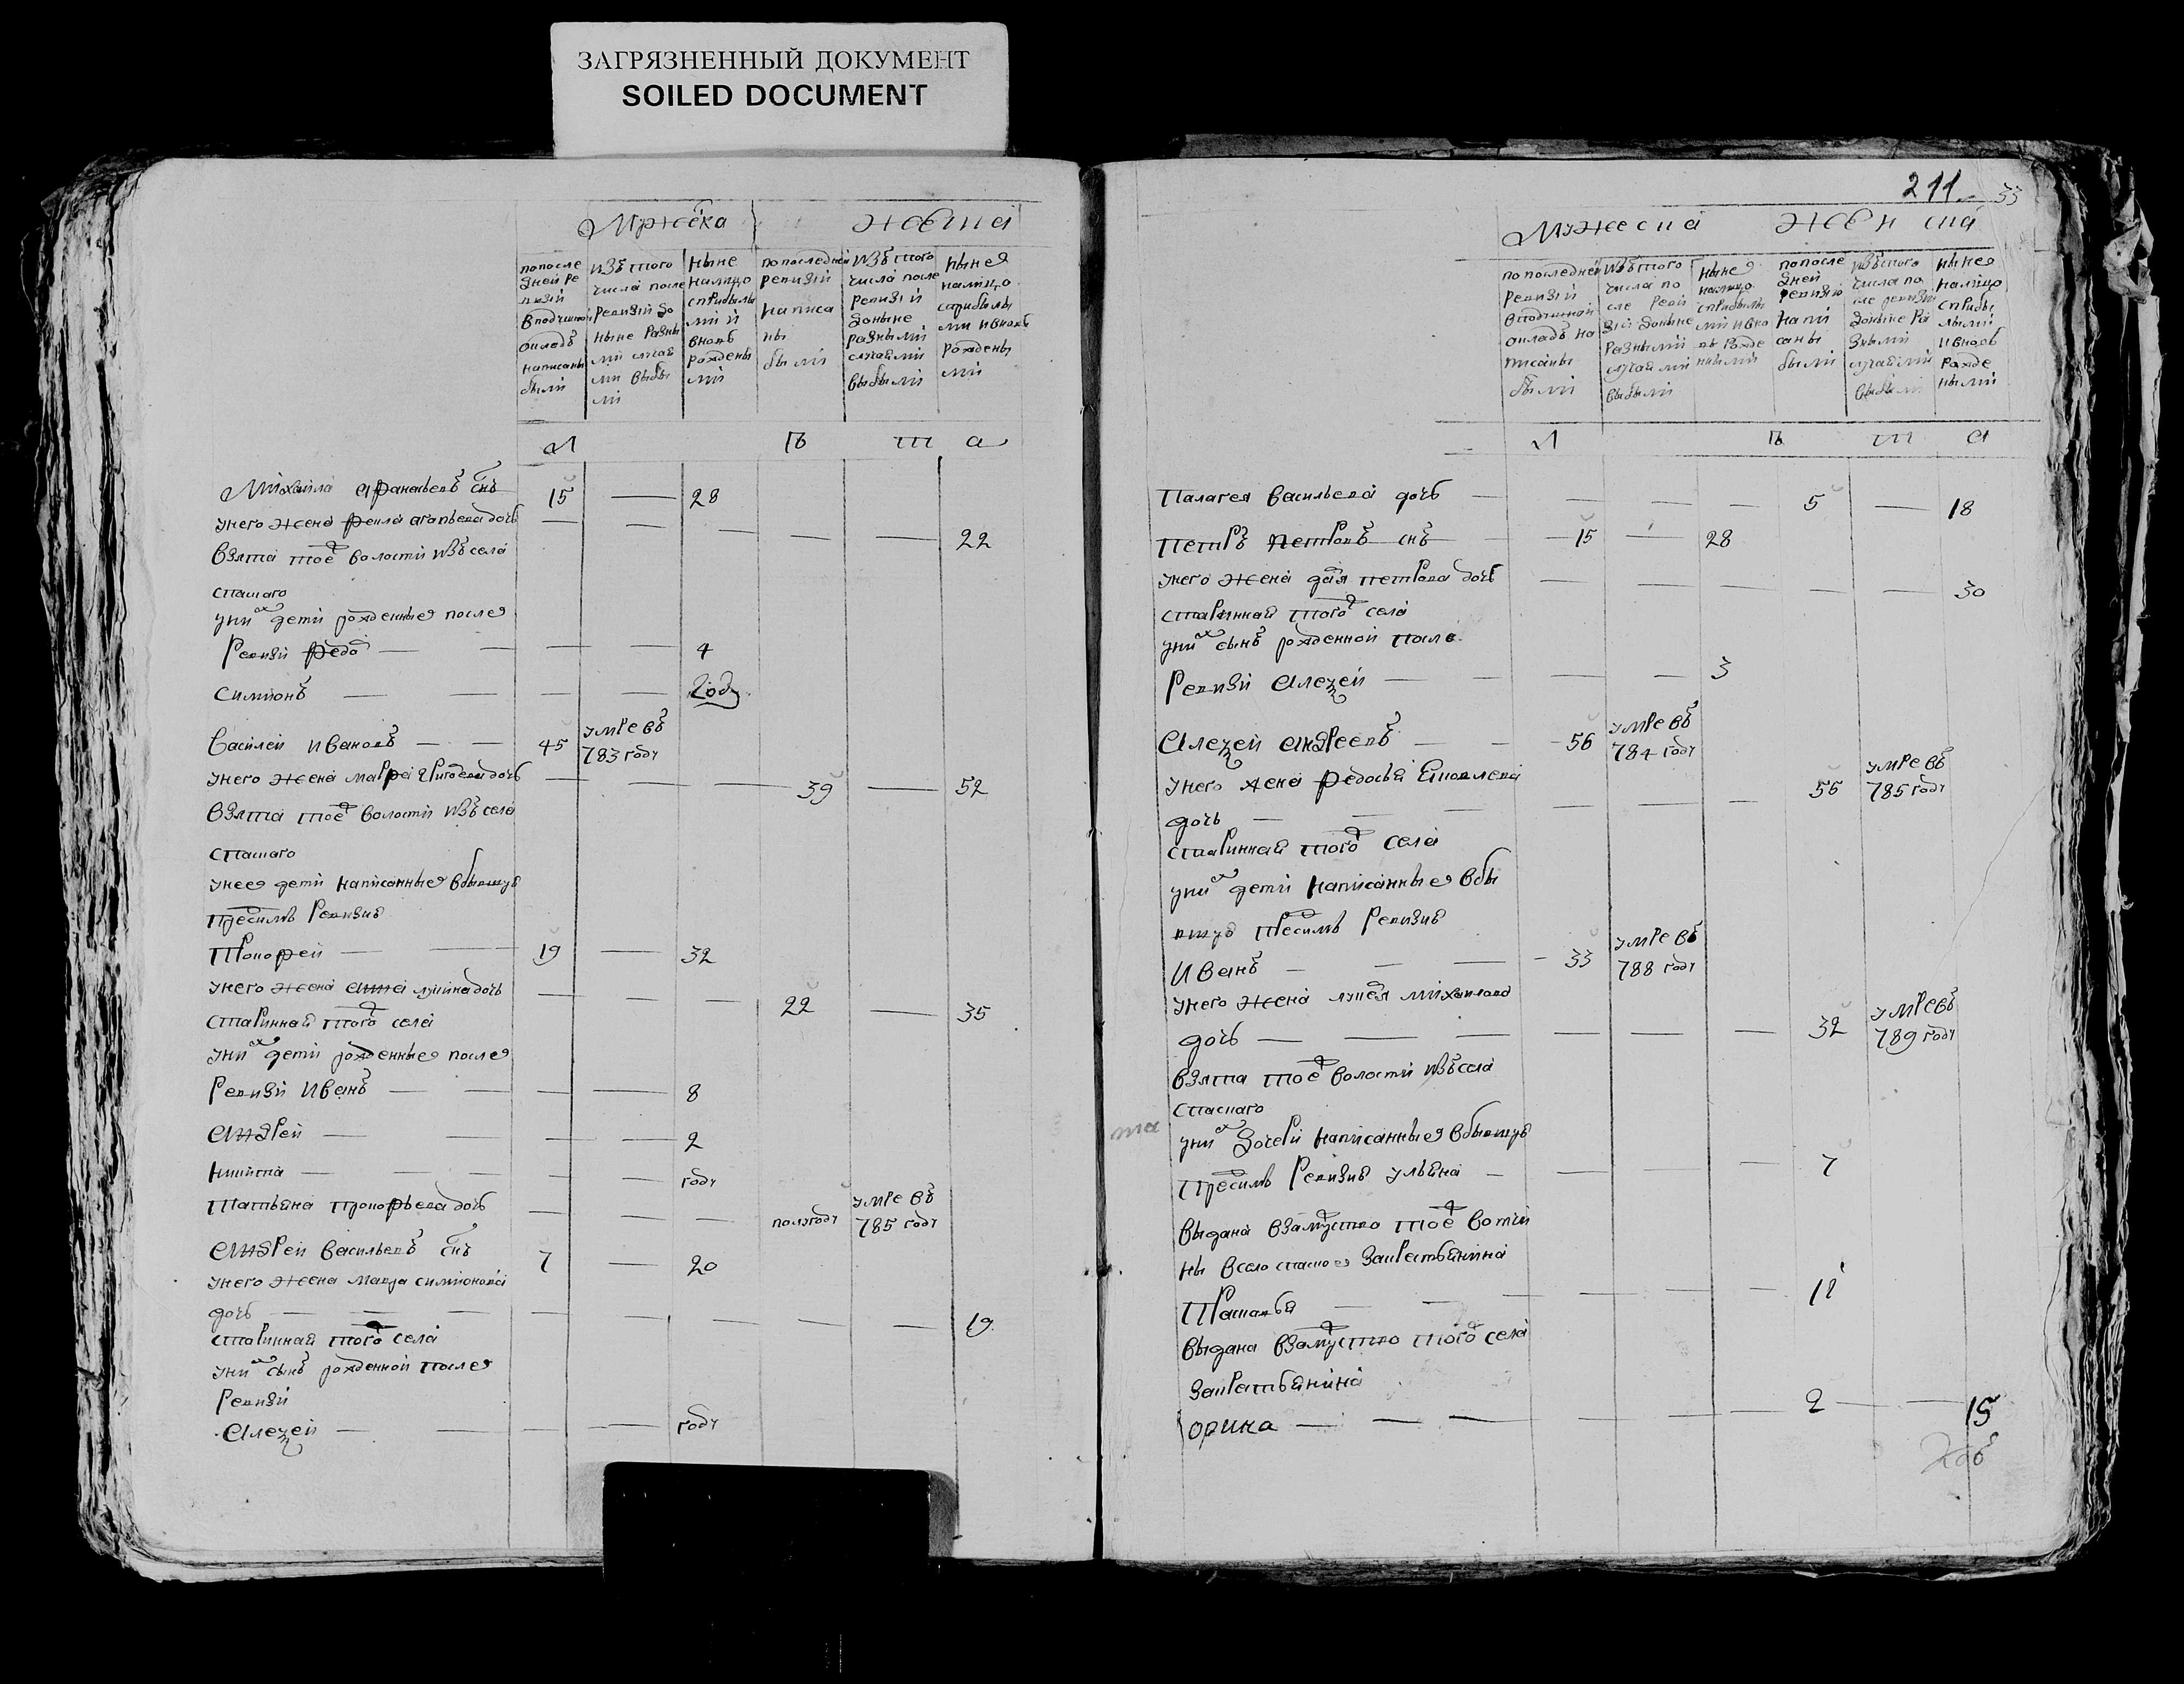 ЗАГРЯЗНЕННЫЙ ДОКУМЕНТ
SOILED DOCUMENT
Мужеска женска
по после дней ревизии в подушном окладе написаны были
изъ того числа после ревизии до ныне разными случаями выбыли
ныне на лицо с прибылыми и вновь рожденными
по последней ревизии написаны были
изъ того числа после ревизии до ныне разными случаями выбыли
ныне на лицо с прибылыми и вновь рожденными
л ѣ т а
Михайла Афанасьевъ снъ 15 — 28
у него жена Фекла Агапьева дочь — — — — — 22
взята тоеж волости изъ села
Спаского
у них дети рожденные после
ревизи Федо — — — — 4
Симионъ — — — — 2 году
Василей Ивановъ — — 45 умре въ 783 году
у него жена Мавра Григорева дочь — — — 39 — 52
взята тоеж волости изъ села
Спаского
у нее дети написанные в бывшую
пред сим ревизию
Прокофей — — 19 — 32
у него жена Анна Лукина дочь — — — 22 — 35
старинная того ж села
у них дети рожденные после
ревизи Иванъ — — — — 8
Андрей — — — — 2
Никита — — — — году
Татьяна Прокофьева дочь — — — полугоду умре въ 785 году
Андрей Васильевъ снъ 7 — 20
у него жена Мавра Симионова
дочь — — — — — — — — 19
старинная того ж села
у них сынъ рожденной после
ревизи
Алезей — — — — году
211 33
Мужеска женска
по последней ревизии в подушной окладъ написаны были
изъ того числа после ревизии до ныне разными случаями выбыли
ныне на лицо с прибылыми и вновь рожденными
по последней ревизии написаны были
изъ того числа после ревизии до ныне разными случаями выбыли
ныне на лицо с прибылыми и вновь рожденными
л ѣ т а
Палагея Васильева дочь — — — — 5 — 18
Петръ Петровъ снъ — 15 — 28
у него жена Дарья Петрова дочь — — — — — 30
старинная того ж села
у них сынъ рожденной после
ревизи Алезей — — — — 3
Алезей Андреевъ — — 56 умре въ 784 году
у него жена Федосья Яковлева
дочь — — — — — — 55 умре въ 785 году
старинная того ж села
у них дети написанные в бы
вшую пред сим ревизию
Иванъ — — — 33 умре въ 788 году
у него жена Лукерья Михаилова
дочь — — — — — — 32 умре въ 789 году
взята тоеж волости изъ села
Спаского
у них дочери написанные в бывшую
пред сим ревизию Ульяна — — — — 7
выдана в замужство тоеж вотчи
ны в село Спаское за крестьянина
Прасковья — — — — — 11
выдана в замужство того ж села
за крестьянина
Орина — — — — — — 2 — 15